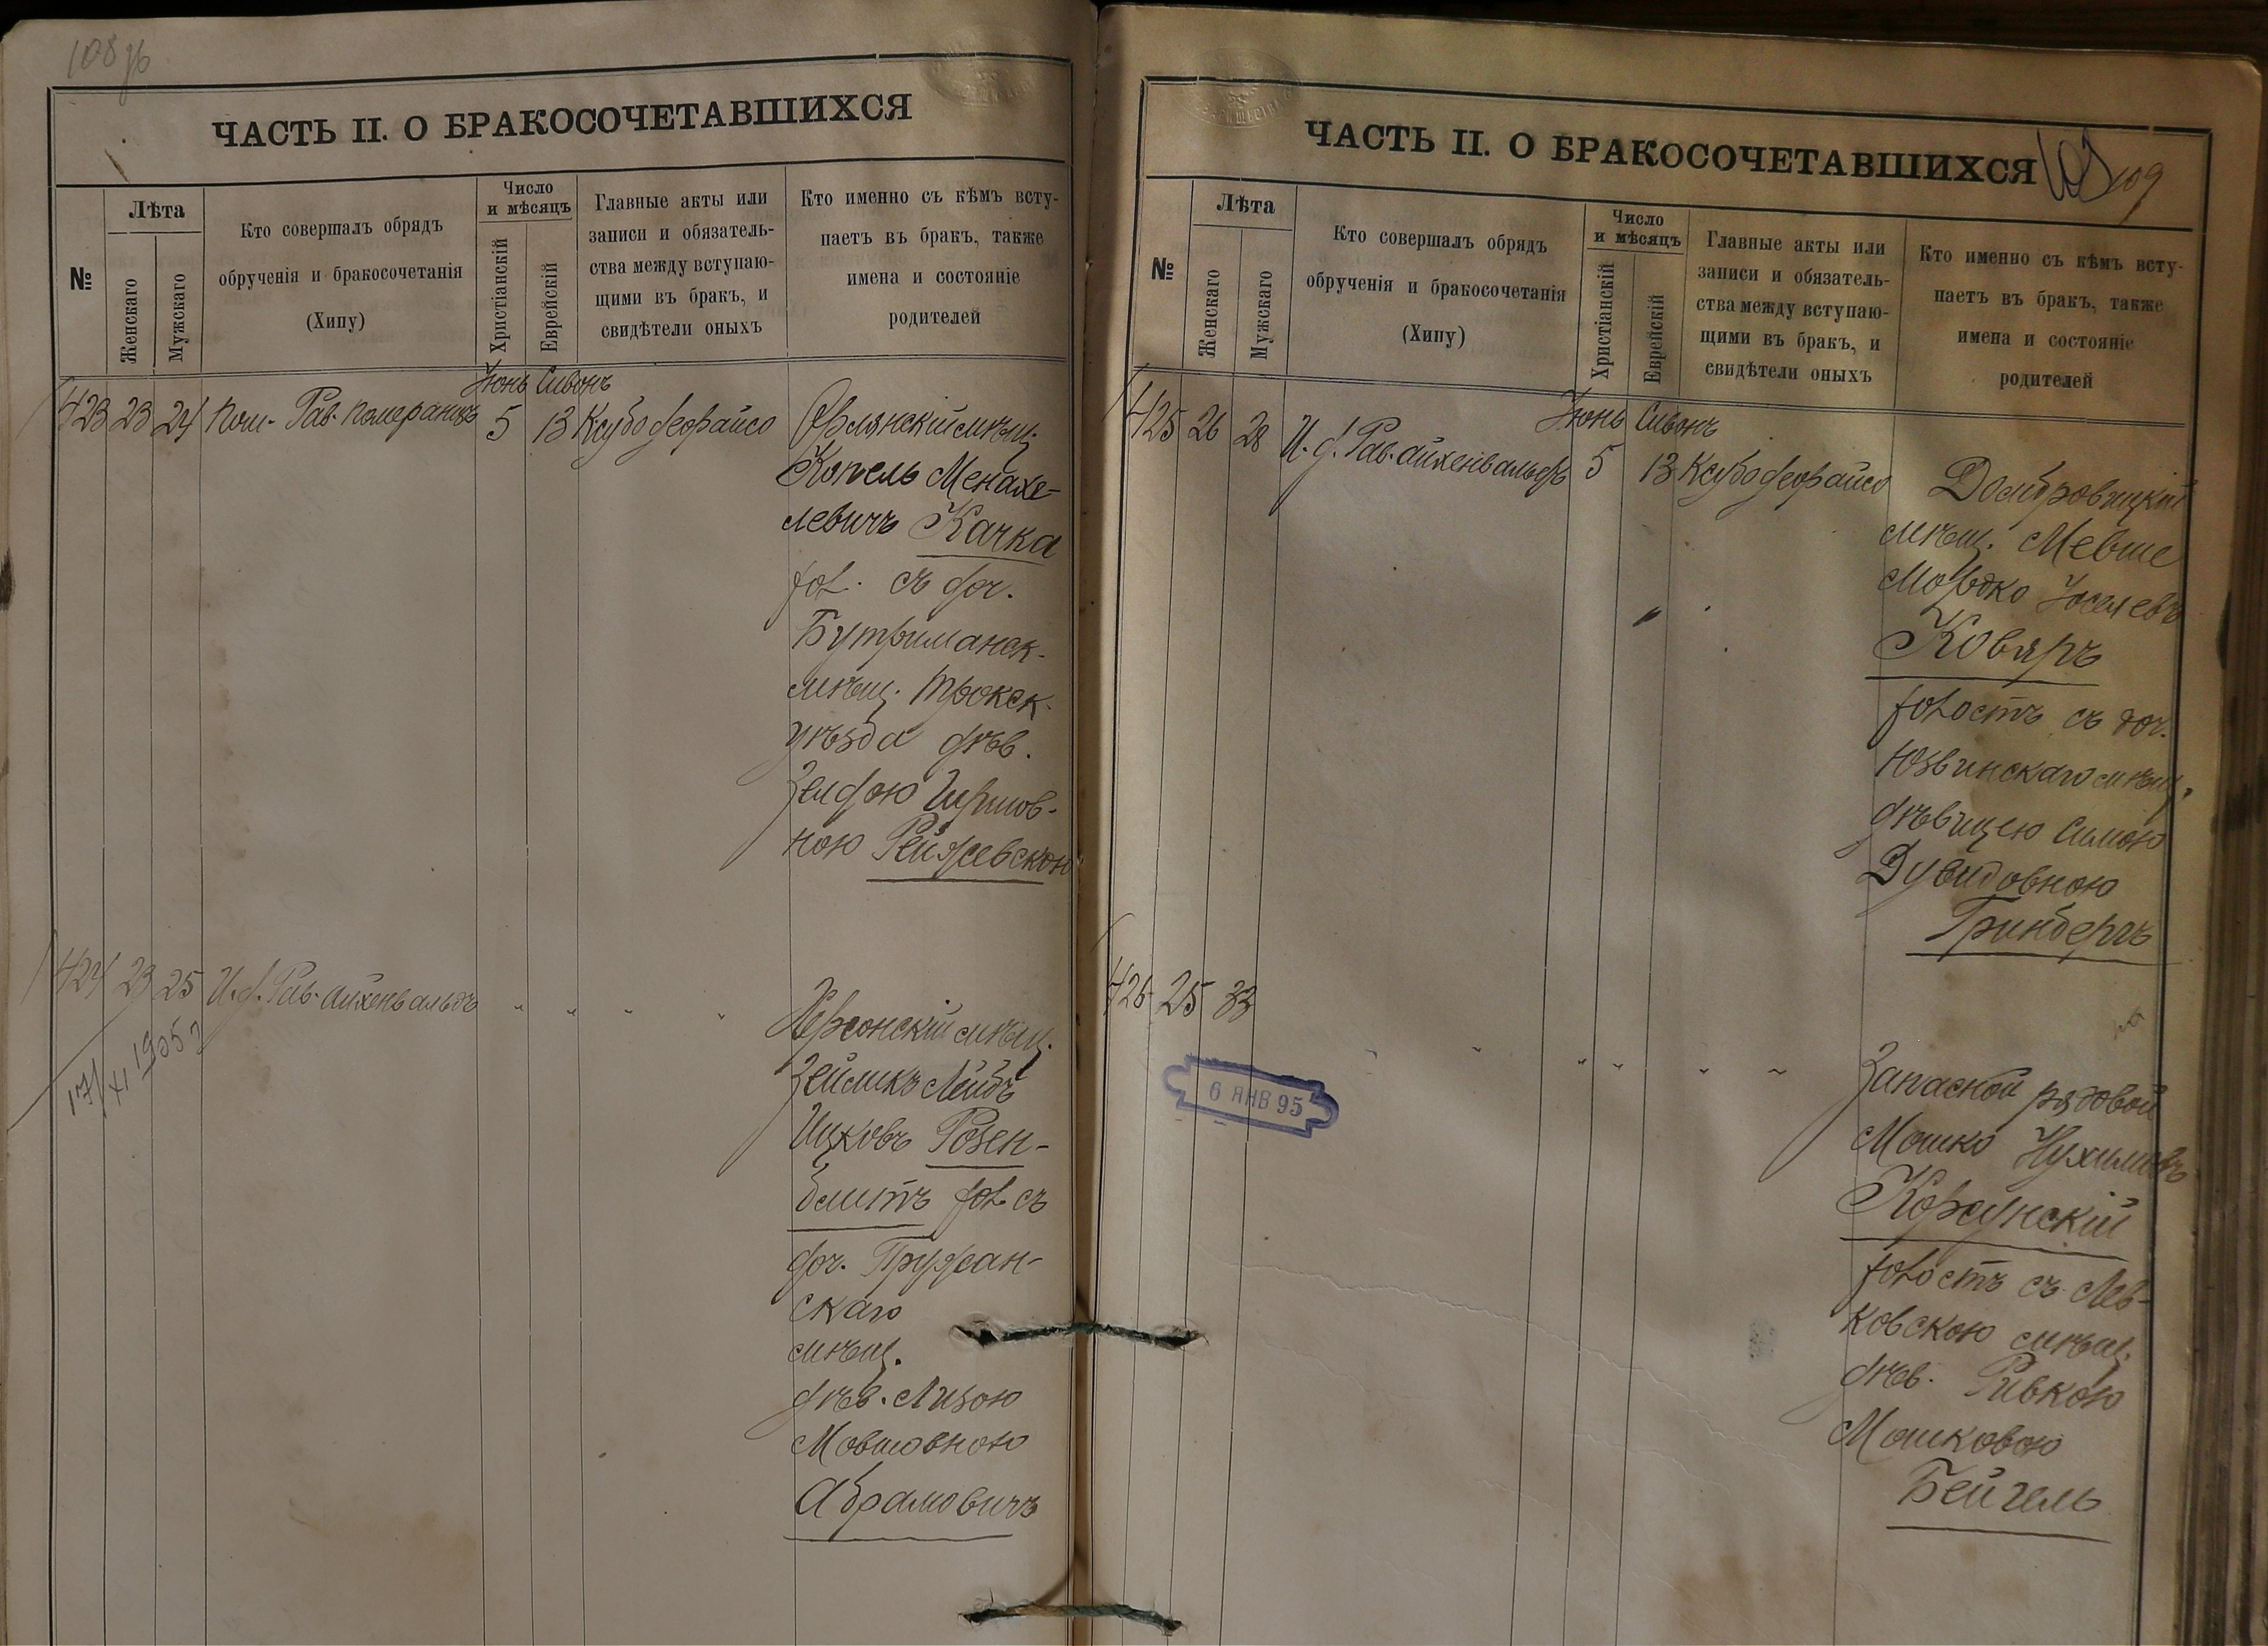 108 об
ЧАСТЬ II. О БРАКОСОЧЕТАВШИХСЯ
№
Лѣта
Женскаго
Мужскаго
Кто совершалъ обрядъ
обрученія и бракосочетанія
(Хипу)
Число
и мѣсяцъ
Христіанскій
Еврейскій
Главные акты или
записи и обязатель-
ства между вступаю-
щими въ бракъ, и
свидѣтели оныхъ
Кто именно съ кѣмъ всту-
паетъ въ бракъ, также
имена и состояніе
родителей
Іюнь Сивонъ
423 23 24 Пом. Рав. Померанцъ 5 13 Ксубо деорайсо
мѣщ.
Копель Менахе-
левичъ Качка
хол. съ доч.
Бутриманск.
мѣщ. Трокск.
уѣзда дѣв.
Зелдою Иршов-
ною
424 23 25 И. д. Рав. Айхенвальдъ " " " "
17/XI 1905 г
Херсонскій мѣщ.
Зейликъ Лейбъ
Ицковъ Розен-
блитъ хол съ
доч. Пружан-
скаго
мѣщ.
дѣв. Лизою
Мовшовною
Абрамовичъ
109
ЧАСТЬ II. О БРАКОСОЧЕТАВШИХСЯ
№
Лѣта
Женскаго
Мужскаго
Кто совершалъ обрядъ
обрученія и бракосочетанія
(Хипу)
Число
и мѣсяцъ
Христіанскій
Еврейскій
Главные акты или
записи и обязатель-
ства между вступаю-
щими въ бракъ, и
свидѣтели оныхъ
Кто именно съ кѣмъ всту-
паетъ въ бракъ, также
имена и состояніе
родителей
Іюнь Сивонъ
425 26 28 И. д. Рав. Айхенвальдъ 5 13 Ксубо деорайсо
Домбровицкій
мѣщ. Мевше
Мордко Іоселевъ
Ковяръ
холостъ съ доч.
Юзвинскаго мѣщ.
дѣвицею Симою
Дувидовною
Гринбергъ
426 25 33 " " " " " "
6 ЯНВ 95
Запасной рядовой
Мошко Нухимовъ
Корсунскій
холостъ съ Лев-
ковскою мѣщ.
дѣв. Ривкою
Мошковою
Бейгель